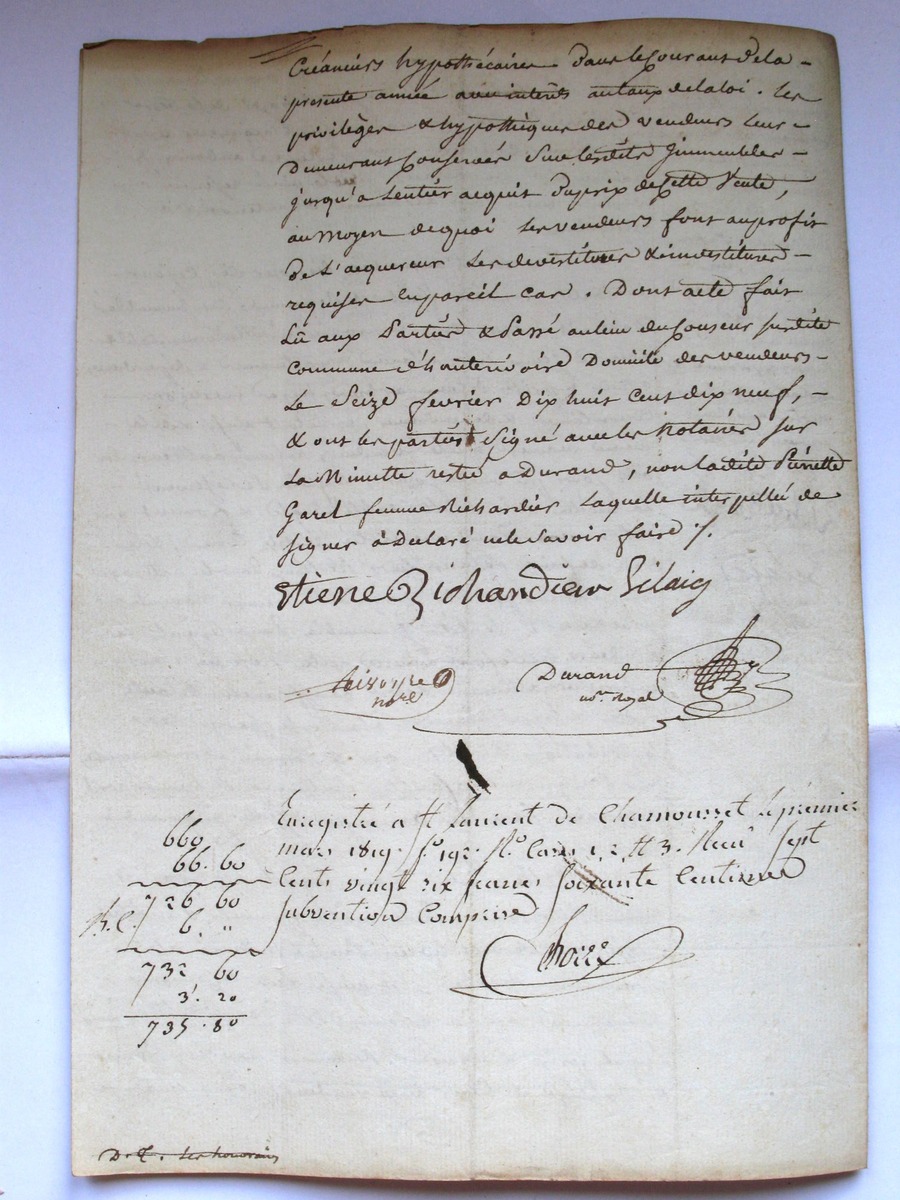 Créanciers hypothécaires Dans le Courant de la
presente année avec intérêts au taux de la loi. Les
privilèges & hypothèques des vendeurs leur
Demeurant Conservés Sur lesdits Immeubles
jusqu'a Lentier acquit Du prix de Cette Vente,
au moyen de quoi les vendeurs font au profit
De L'acquereur les devestitures & investitures
requises En pareil cas. Dont acte fait
Lû aux Parties & Passé au lieu du susdite
Commune d'hauterivoire Domicile des vendeurs
Le Seize fevrier Dix huit Cent dix neuf,
& ont les parties Signé avec les Notaires sur
La Minutte restée a Durand, non ladite Pierrette
Garel femme Richardier Laquelle interpellée de
Signer à Déclaré ne le Savoir faire ./.
Etiene Richardier
Durand
nore
nore Royal
Enregistré a St Laurent de Chamousset le premier
mars 1819. fo 192. Ro Cases 1, 2 & 3. Recu Sept
Cents vingt six francs Soixante Centimes
Subvention Comprise
660
66. 60
726 60
R.C. 6. "
732 60
3. 20
735. 80
D. & C. les honoraires